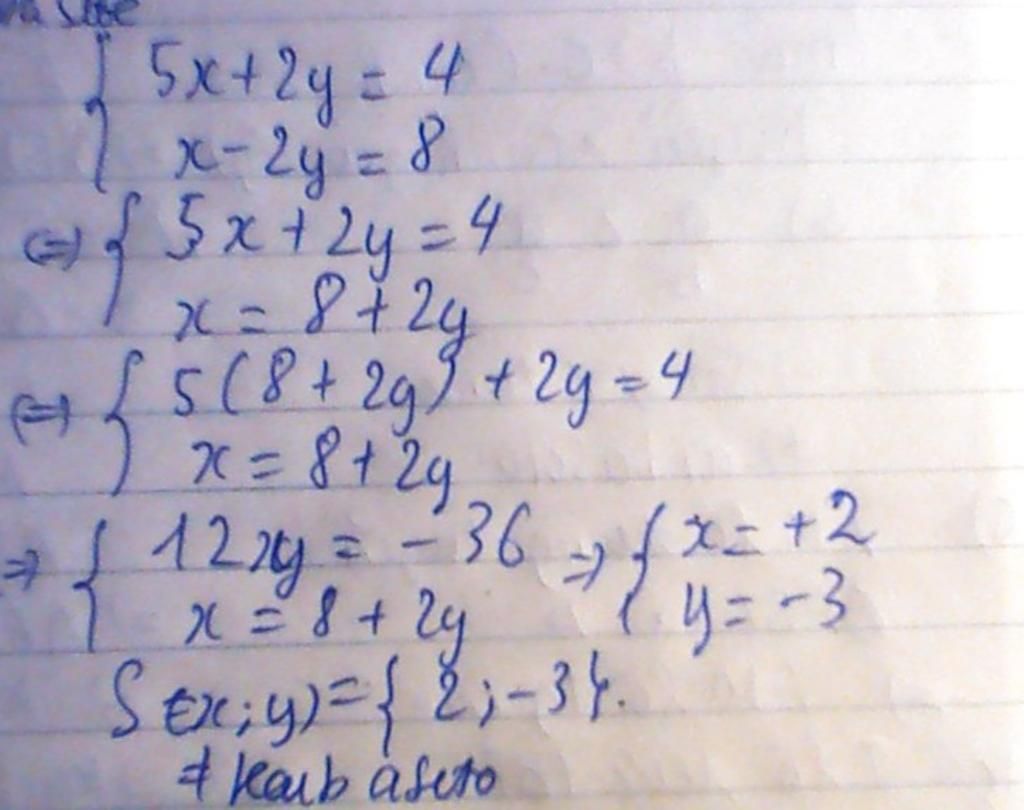 { 5x+2y = 4
x-2y = 8
⇔ { 5x+2y = 4
x = 8+2y
⇔ { 5(8+2y)+2y = 4
x = 8+2y
⇒ { 12y = -36 ⇒ { x = +2
x = 8+2y y = -3
S(x;y) = { 2;-3}.